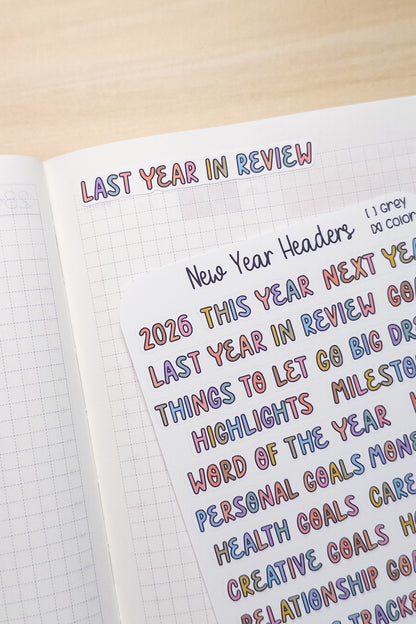 LAST YEAR IN REVIEW
New Year Headers
[ ] Grey
[x] Color
2026 THIS YEAR NEXT YEA
LAST YEAR IN REVIEW GO
THINGS TO LET GO BIG DR
HIGHLIGHTS MILESTO
WORD OF THE YEAR
PERSONAL GOALS MON
HEALTH GOALS CARE
CREATIVE GOALS
RELATIONSHIP GOA
TRACKE